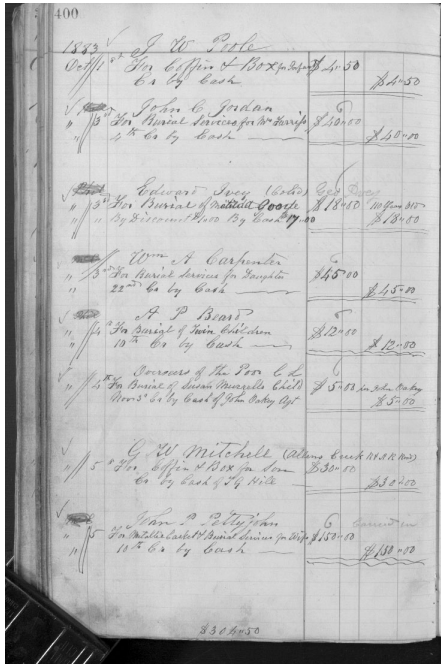 400
1883 J W Poole
Oct 1st For Coffin & Box for Infant $4.50
Cr by Cash $4.50
John C Jordan
" 3rd For Burial Services for Mr Farriss $40.00
" 4th Cr by Cash $40.00
Edward Ivey (Cold)
" 3rd For Burial of Matilda $18.00
" " By Discount $1.00 By Cash 17.00 $18.00
Wm A Carpenter
" 3rd For Burial Services for Daughter $45.00
" 22nd Cr by Cash $45.00
A P Beard
" 4th For Burial of Twin Children $12.00
" 10th Cr by Cash $12.00
Overseers of the Poor
" 4th For Burial of Susan Child $5.00 per John Oakey
Cr by Cash of John Oakey Agt $5.00
G W Mitchell (Allens Creek
" 5th For Coffin & Box for Son $30.00
Cr by Cash Hill $30.00
John P Pettyjohn
" 5 For Metallic Casket & Burial Services for Wife $150.00
" 10th Cr by Cash $150.00
$304.50